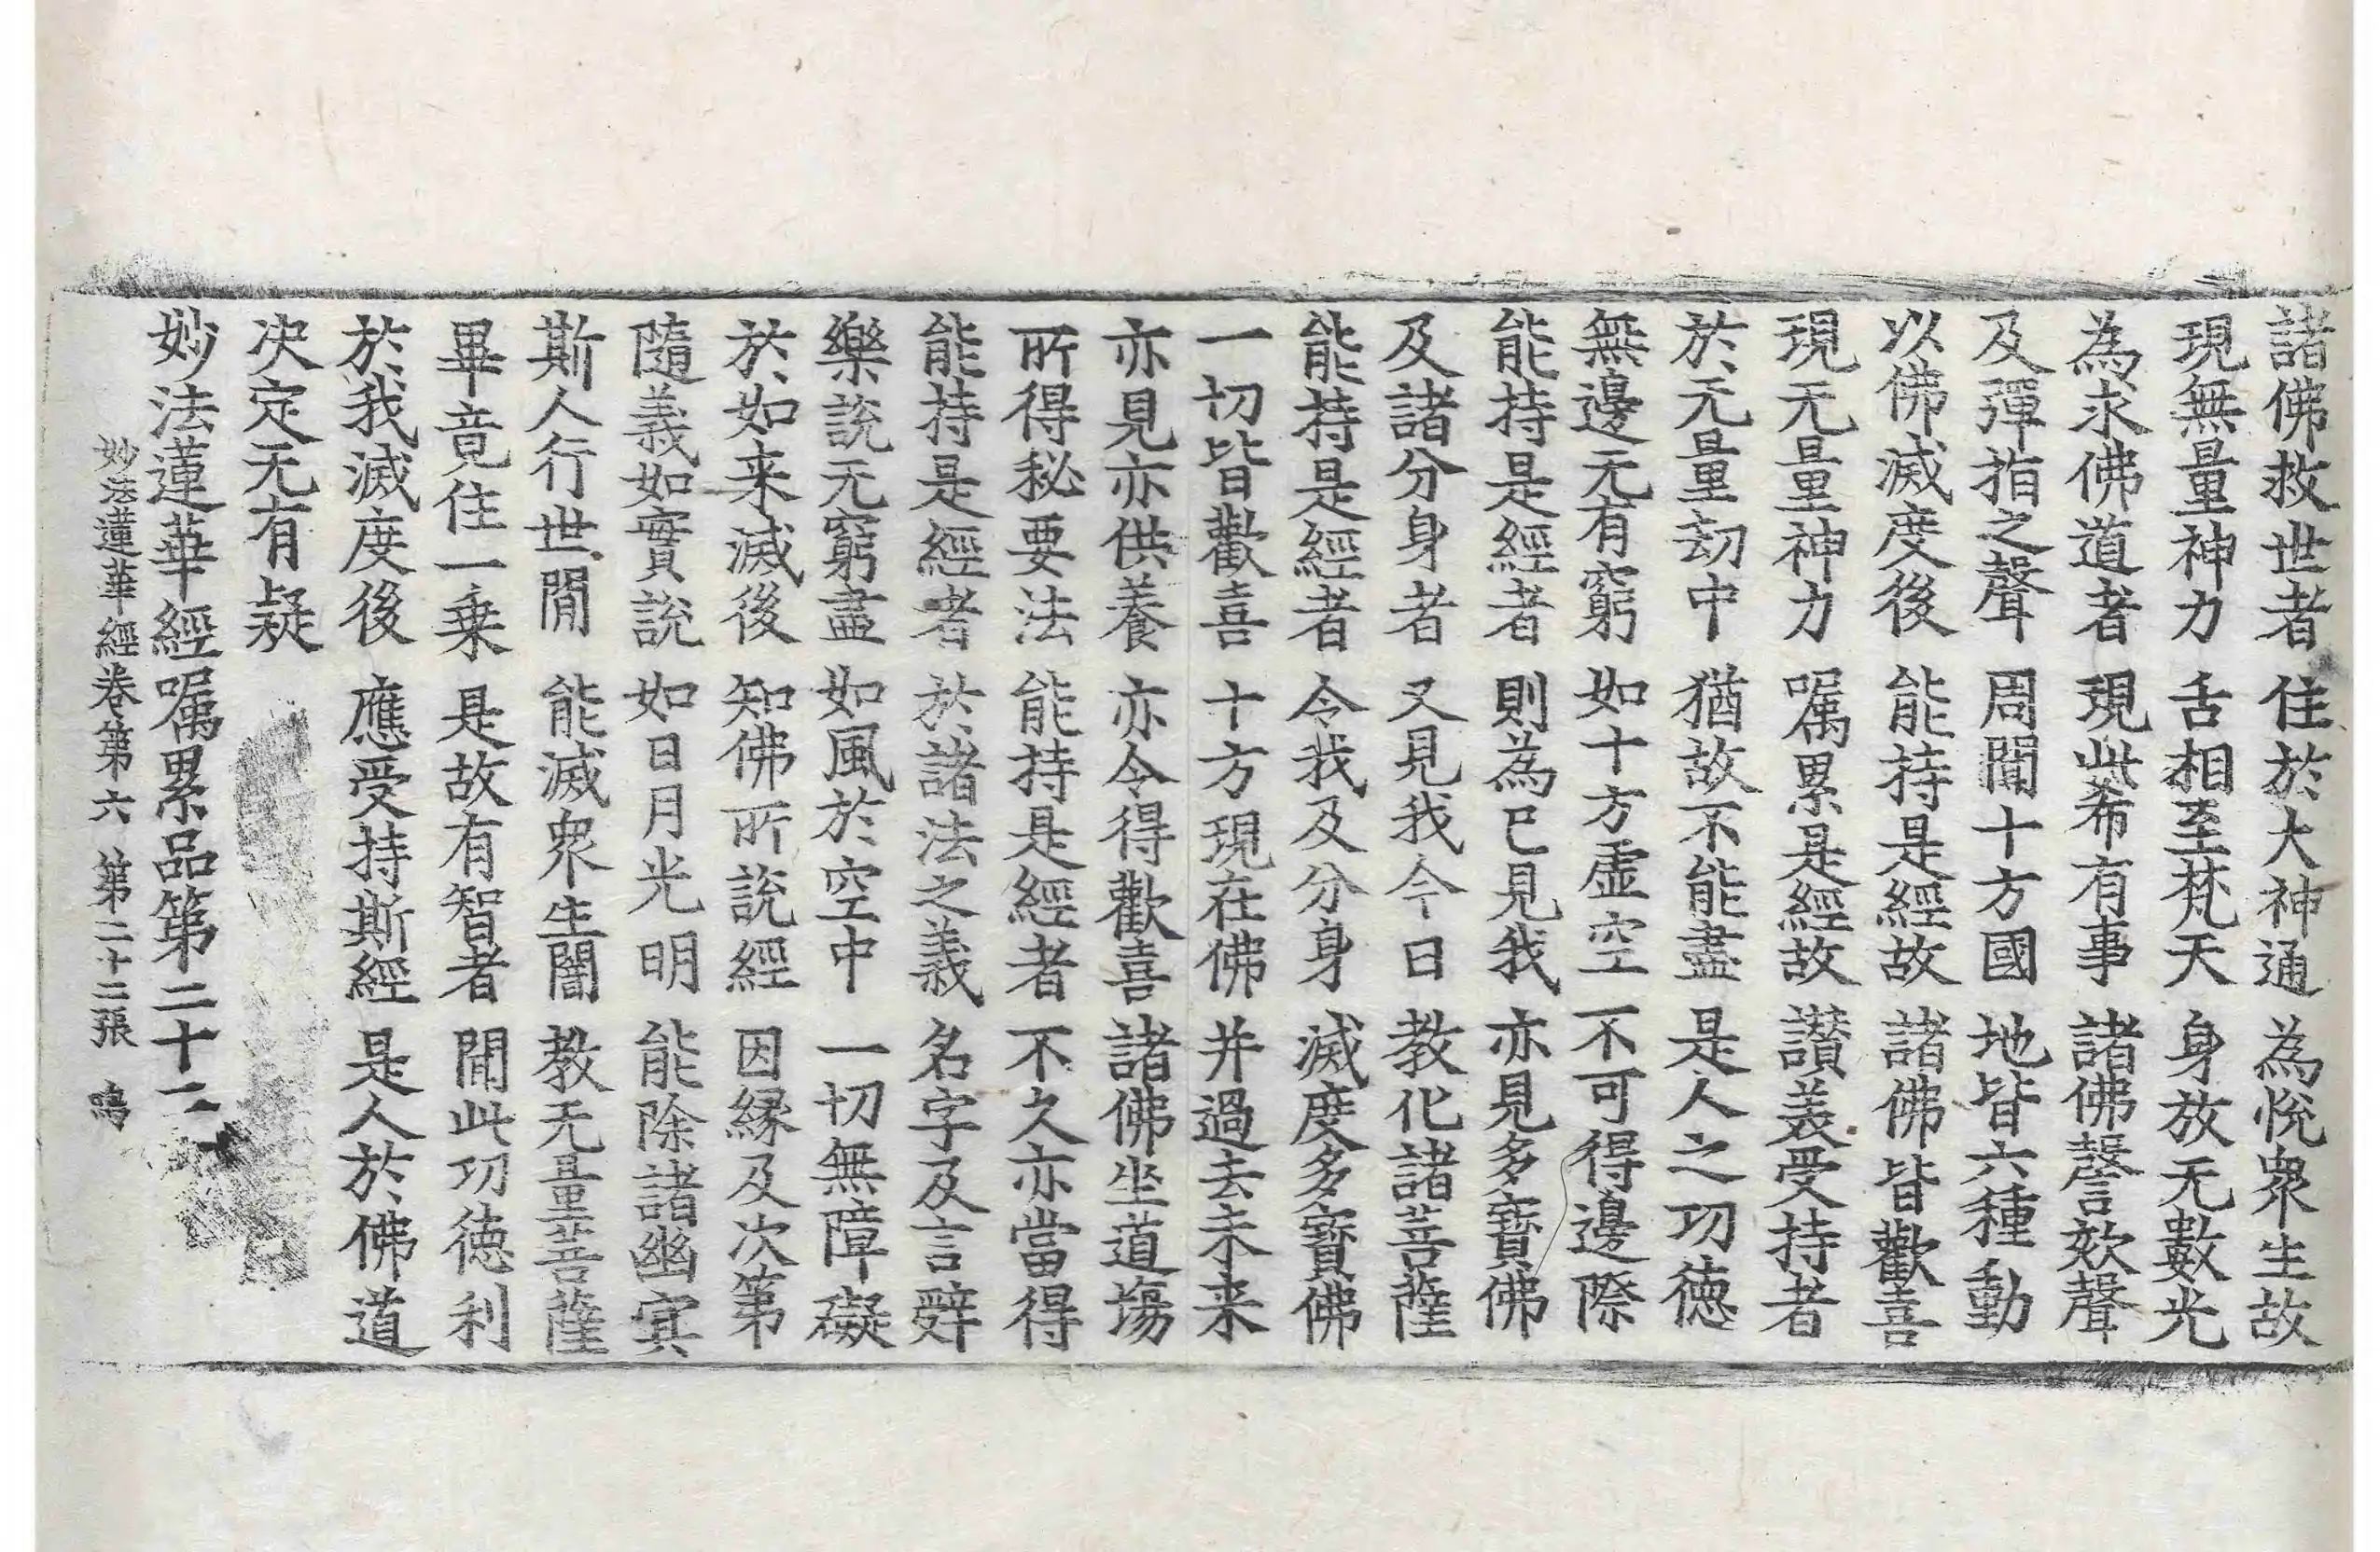 諸佛救世者 住於大神通 為悅衆生故
現無量神力 舌相至梵天 身放无數光
為求佛道者 現此希有事 諸佛謦欬聲
及彈指之聲 周聞十方國 地皆六種動
以佛滅度後 能持是經故 諸佛皆歡喜
現无量神力 嘱累是經故 讃美受持者
於无量劫中 猶故不能盡 是人之功德
無邊无有窮 如十方虛空 不可得邊際
能持是經者 則為已見我 亦見多寶佛
及諸分身者 又見我今日 教化諸菩薩
能持是經者 令我及分身 滅度多寶佛
一切皆歡喜 十方現在佛 并過去未来
亦見亦供養 亦令得歡喜 諸佛坐道場
所得秘要法 能持是經者 不久亦當得
能持是經者 於諸法之義 名字及言辞
樂說无窮盡 如風於空中 一切無障礙
於如来滅後 知佛所說經 因縁及次第
隨義如實說 如日月光明 能除諸幽冥
斯人行世間 能滅衆生闇 教无量菩薩
畢竟住一乗 是故有智者 聞此功德利
於我滅度後 應受持斯經 是人於佛道
决定无有疑
妙法蓮華經嘱累品第二十二
妙法蓮華經卷第六 第二十二張 鳴